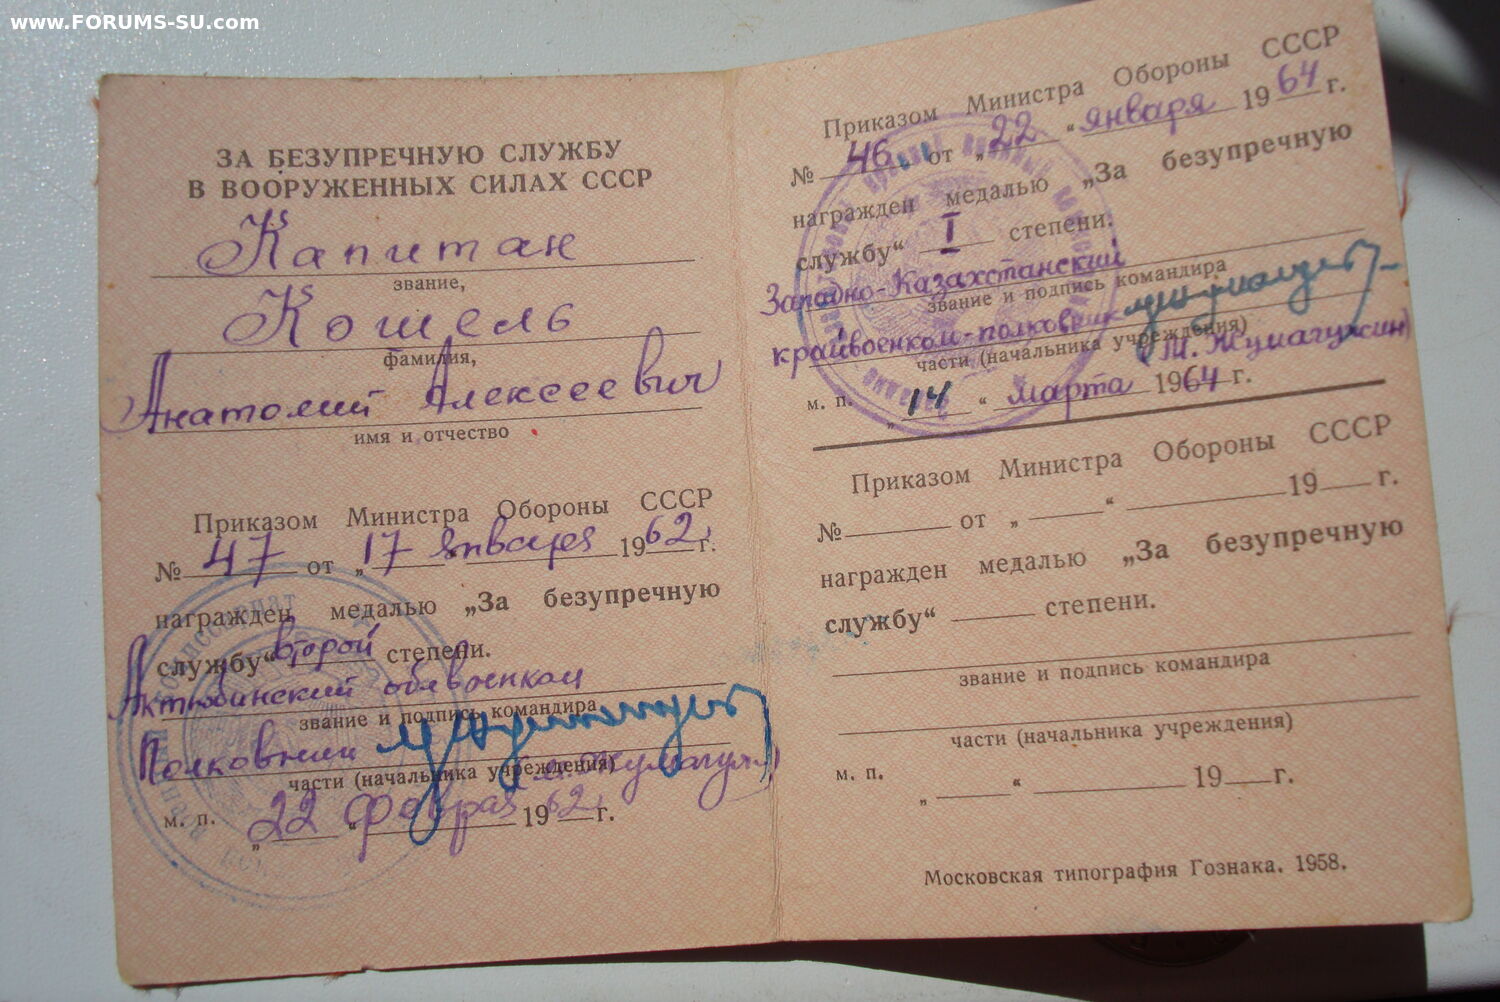 www.FORUMS-SU.com
ЗА БЕЗУПРЕЧНУЮ СЛУЖБУ
В ВООРУЖЕННЫХ СИЛАХ СССР
Капитан
звание,
Кошель
фамилия,
Анатолий Алексеевич
имя и отчество
Приказом Министра Обороны СССР
№ 47 от „17 января 1962 г.
награжден медалью „За безупречную
службу“ второй степени.
Актюбинский облвоенком
звание и подпись командира
Полковник
части (начальника учреждения)
м. п. „22“ феврал 1962 г.
Приказом Министра Обороны СССР
№ 46 от „22“ января 1964 г.
награжден медалью „За безупречную
службу“ I степени.
Западно-Казахстанский
звание и подпись командира
крайвоенком-полковник
части (начальника учреждения)
м. п. „14“ марта 1964 г.
Приказом Министра Обороны СССР
№ от „ “ 19 г.
награжден медалью „За безупречную
службу“ степени.
звание и подпись командира
части (начальника учреждения)
м. п. „ “ 19 г.
Московская типография Гознака. 1958.